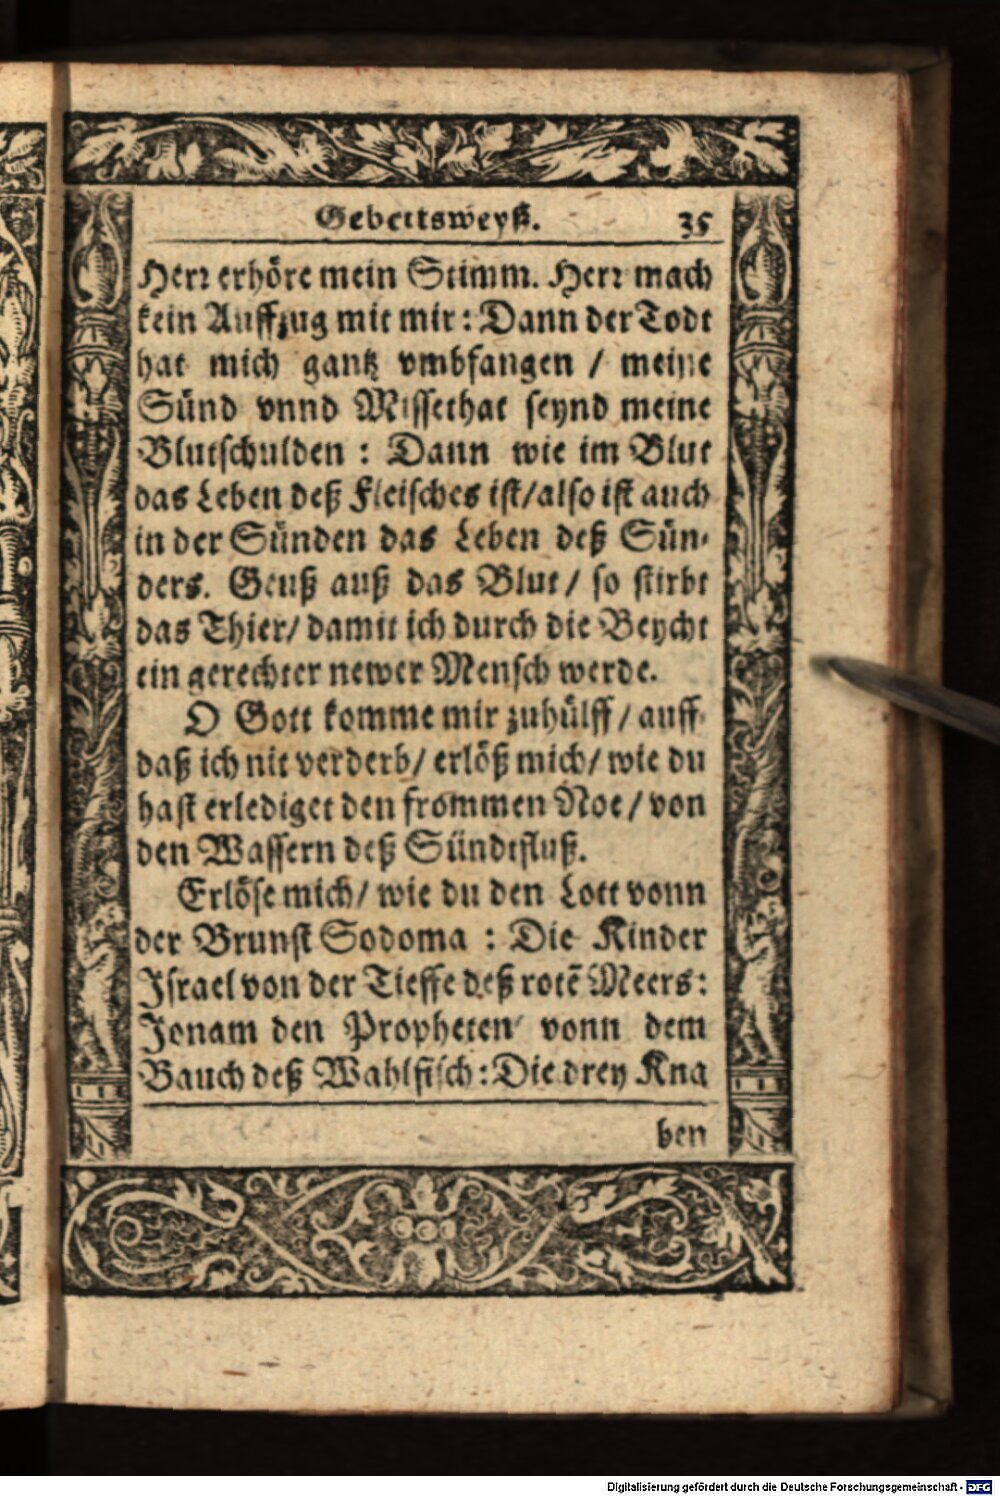 Gebettsweyß. 35
Herr erhöre mein Stimm. Herr mach
kein Auffzug mit mir: Dann der Todt
hat mich gantz vmbfangen / meine
Sünd vnnd Missethat seynd meine
Blutschulden : Dann wie im Blut
das Leben deß Fleisches ist/also ist auch
in der Sünden das Leben deß Sün-
ders. Geuß auß das Blut / so stirbt
das Thier/ damit ich durch die Beycht
ein gerechter newer Mensch werde.
O Gott komme mir zuhülff / auff-
daß ich nit verderb/ erlöß mich/ wie du
hast erlediget den frommen Noe/ von
den Wassern deß Sündtfluß.
Erlöse mich/ wie du den Lott vonn
der Brunst Sodoma : Die Kinder
Israel von der Tieffe deß rotẽ Meers:
Jonam den Propheten vonn dem
Bauch deß Wahlfisch: Die drey Kna
ben
Digitalisierung gefördert durch die Deutsche Forschungsgemeinschaft - DFG